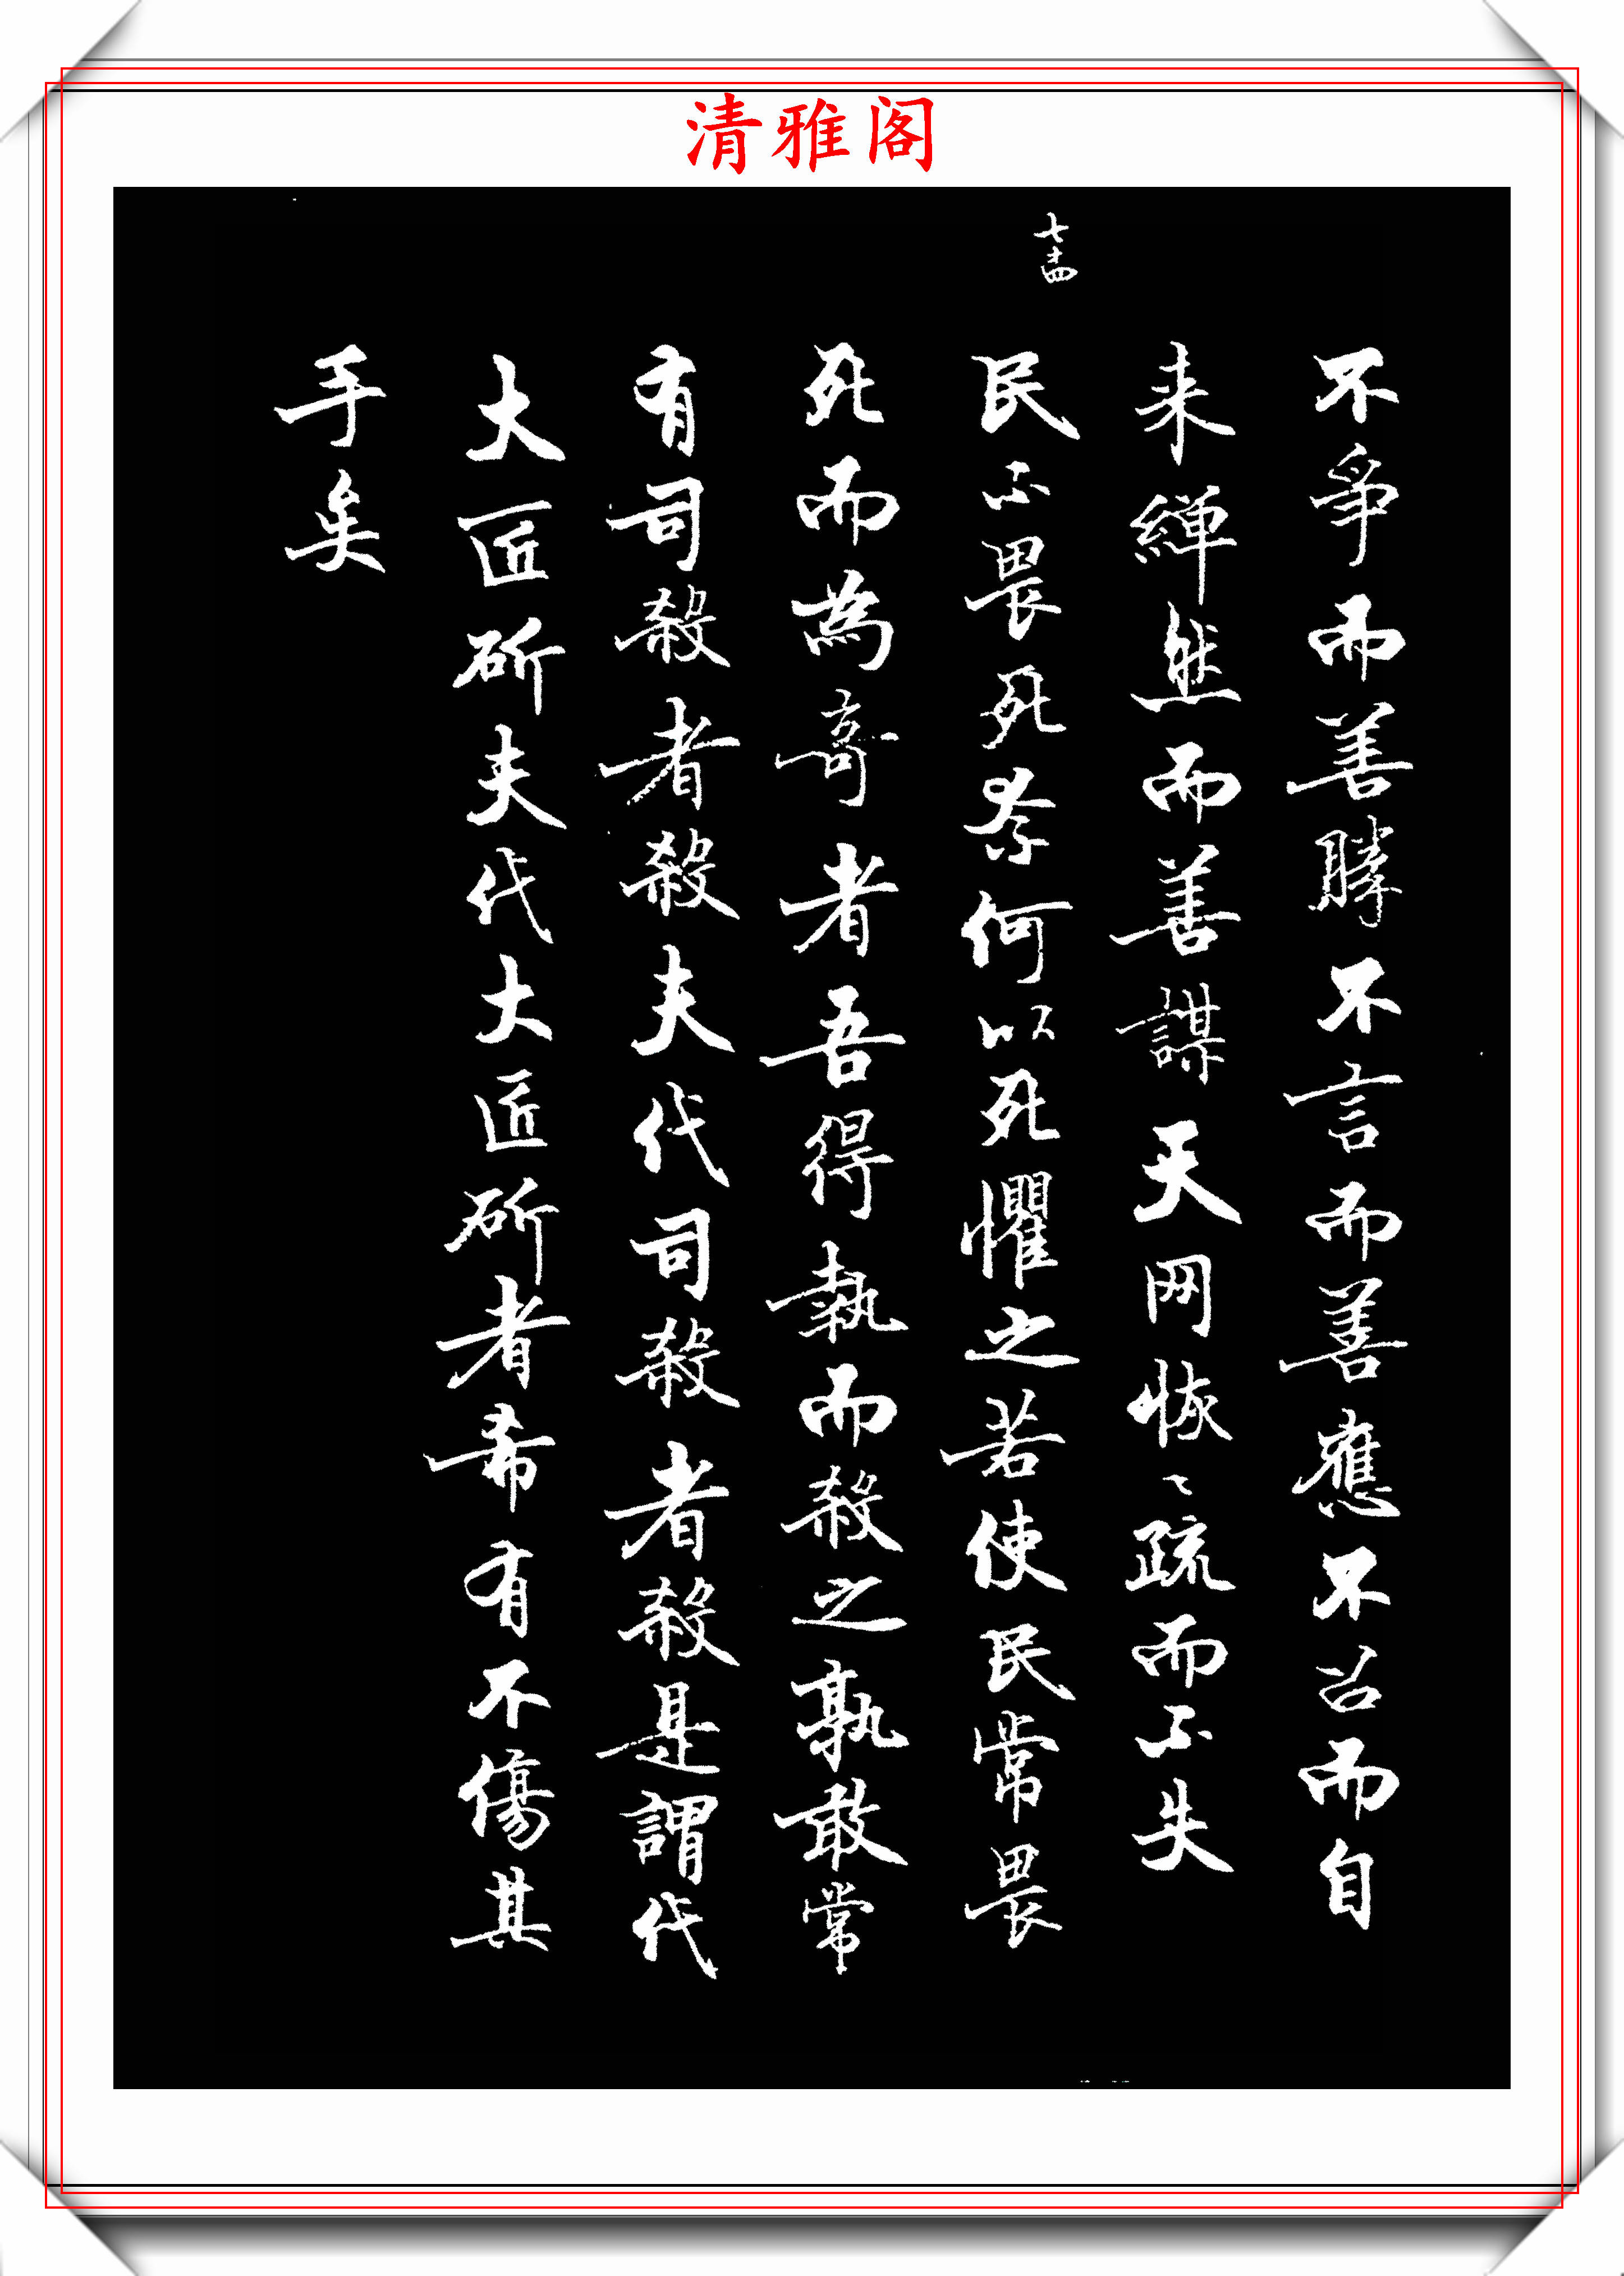 清雅阁
不爭而善勝不言而善應不召而自
来繟然而善謀天网恢〻疏而不失
七十四
民不畏死奈何以死懼之若使民常畏
死而為奇者吾得執而殺之孰敢常
有司殺者殺夫代司殺者殺是謂代
大匠斫夫代大匠斫者希有不傷其
手矣